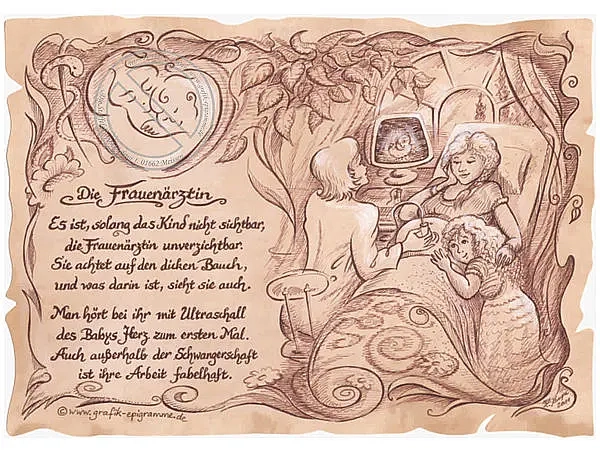 Die Frauenärztin
Es ist, solang das Kind nicht sichtbar,
die Frauenärztin unverzichtbar.
Sie achtet auf den dicken Bauch,
und was darin ist, sieht sie auch.
Man hört bei ihr mit Ultraschall
des Babys Herz zum ersten Mal.
Auch außerhalb der Schwangerschaft
ist ihre Arbeit fabelhaft.
©www.grafik-epigramme.de
01662 Meissen